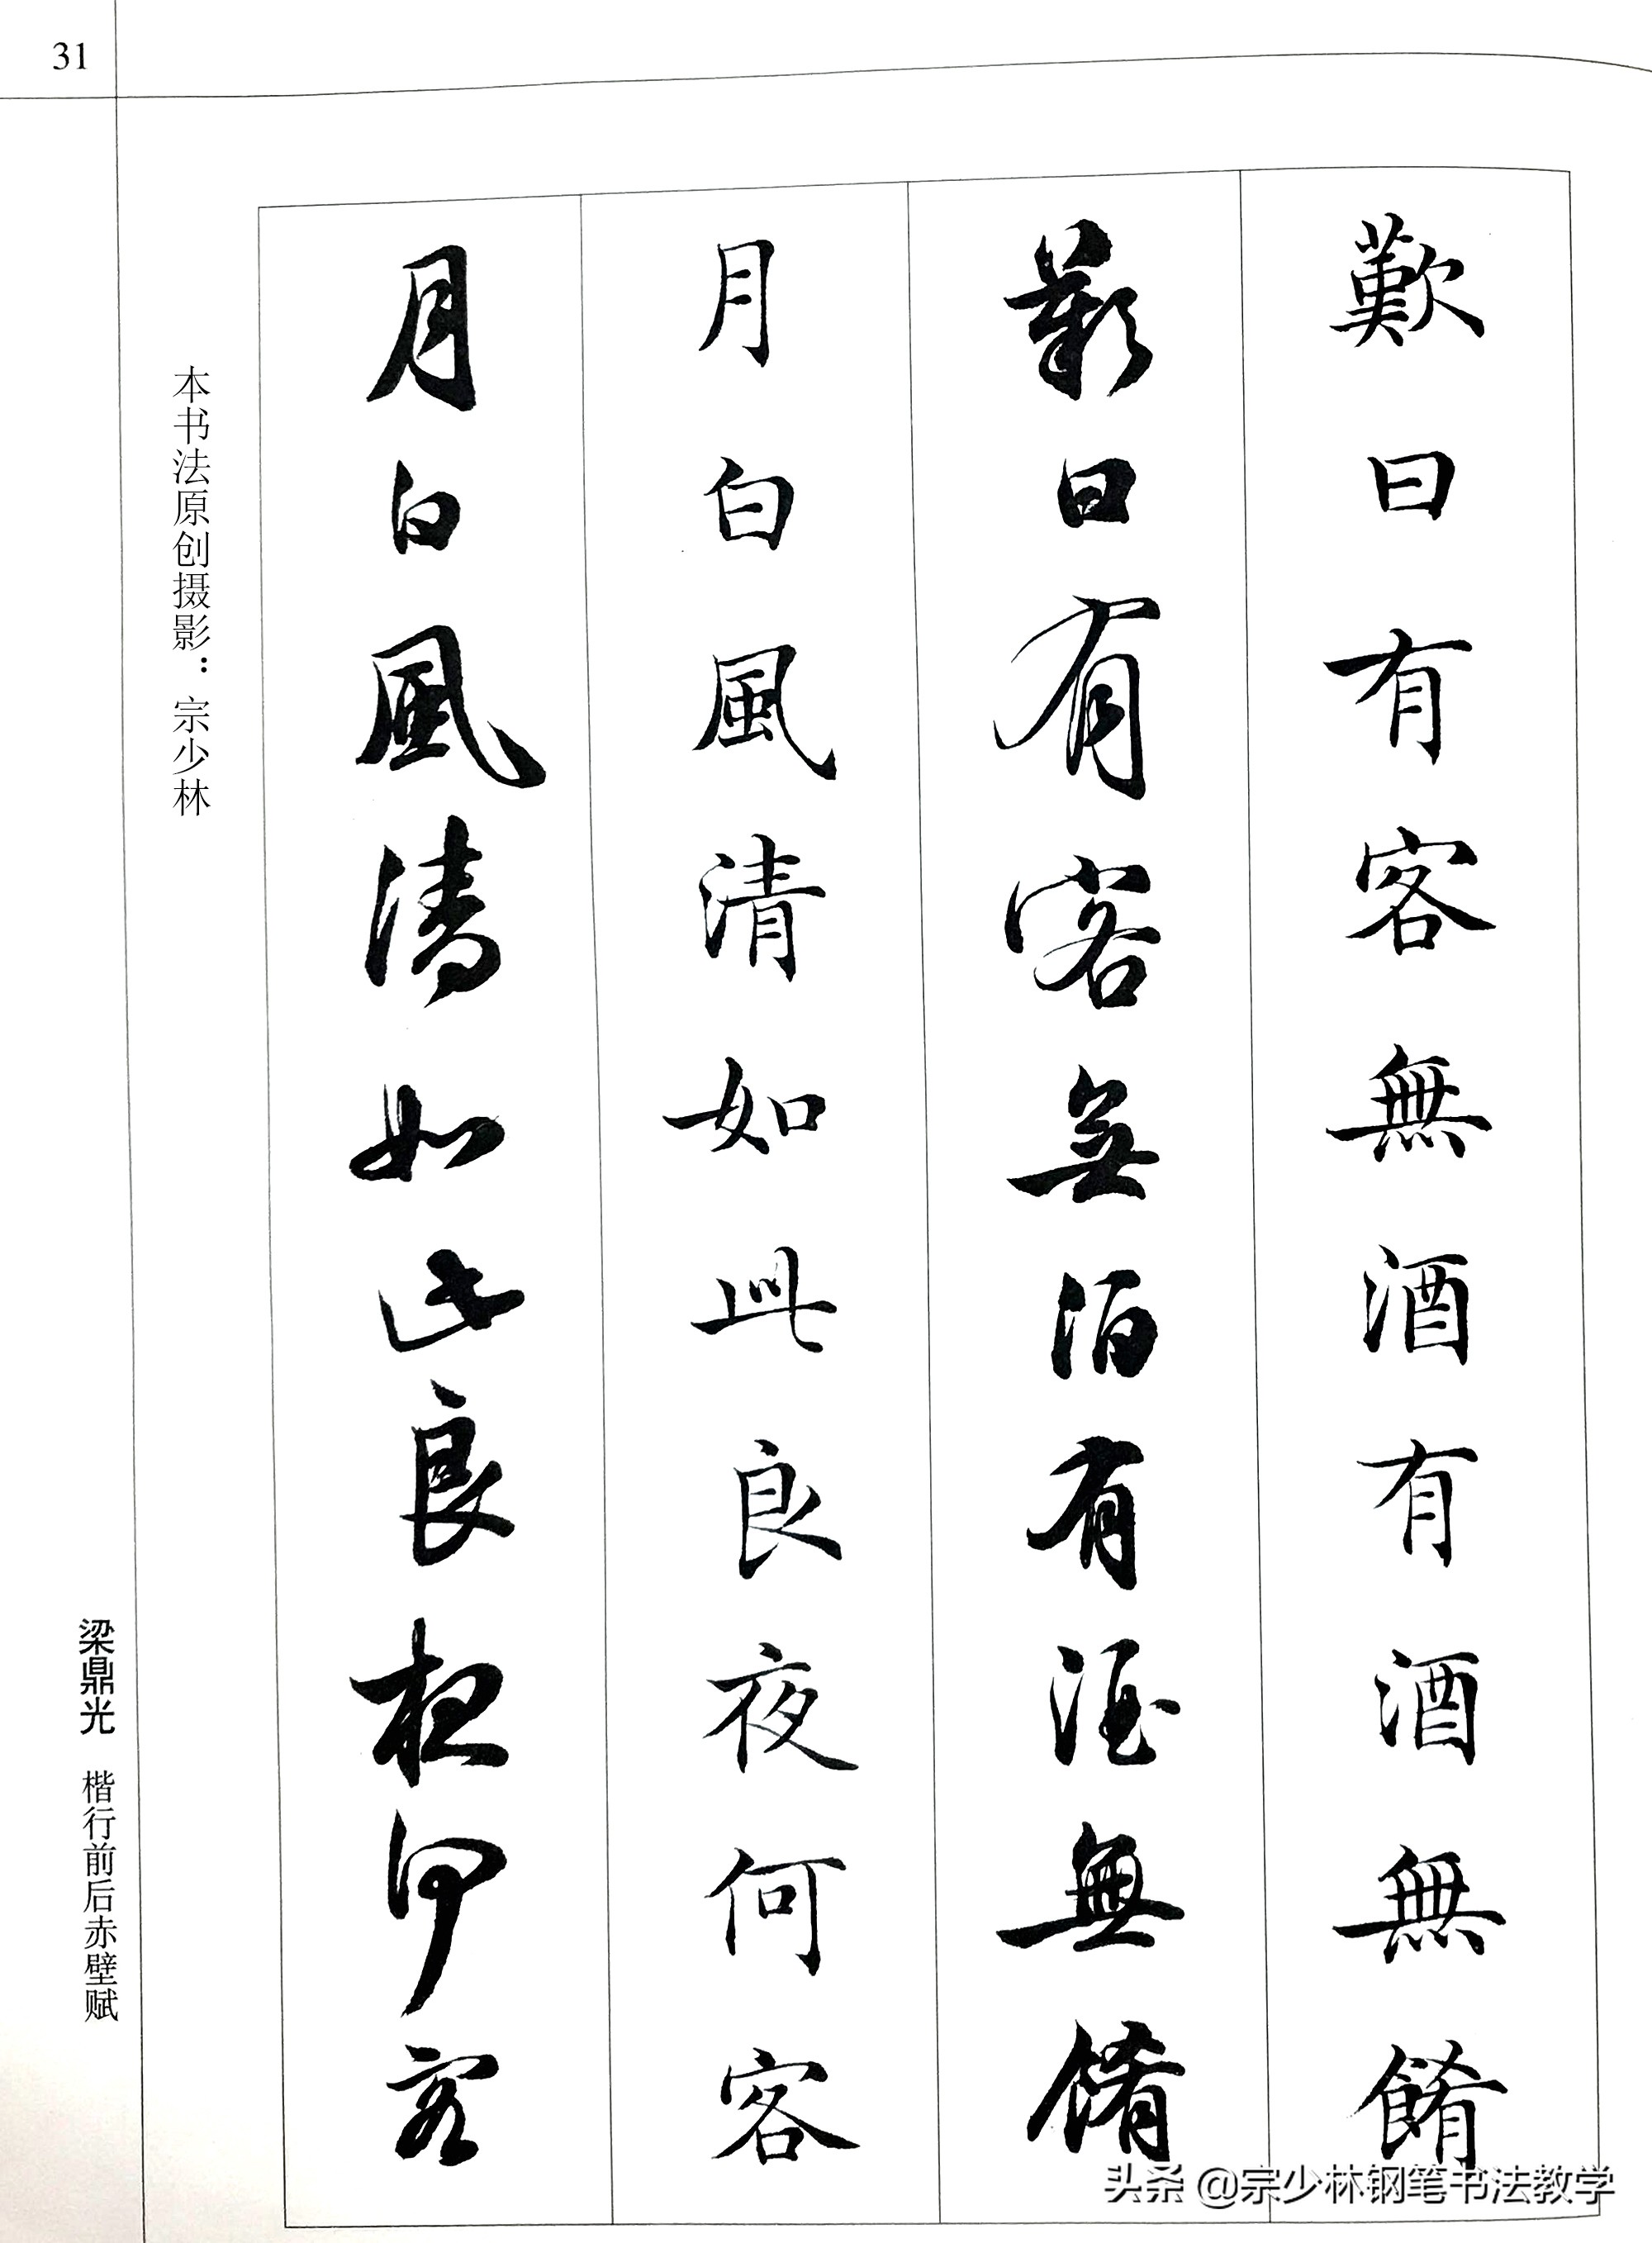 31
歎曰有客無酒有酒無餚
歎曰有客無酒有酒無餚
月白風清如此良夜何客
月白風清如此良夜何客
本书法原创摄影：宗少林
梁鼎光 楷行前后赤壁赋
头条 @宗少林钢笔书法教学